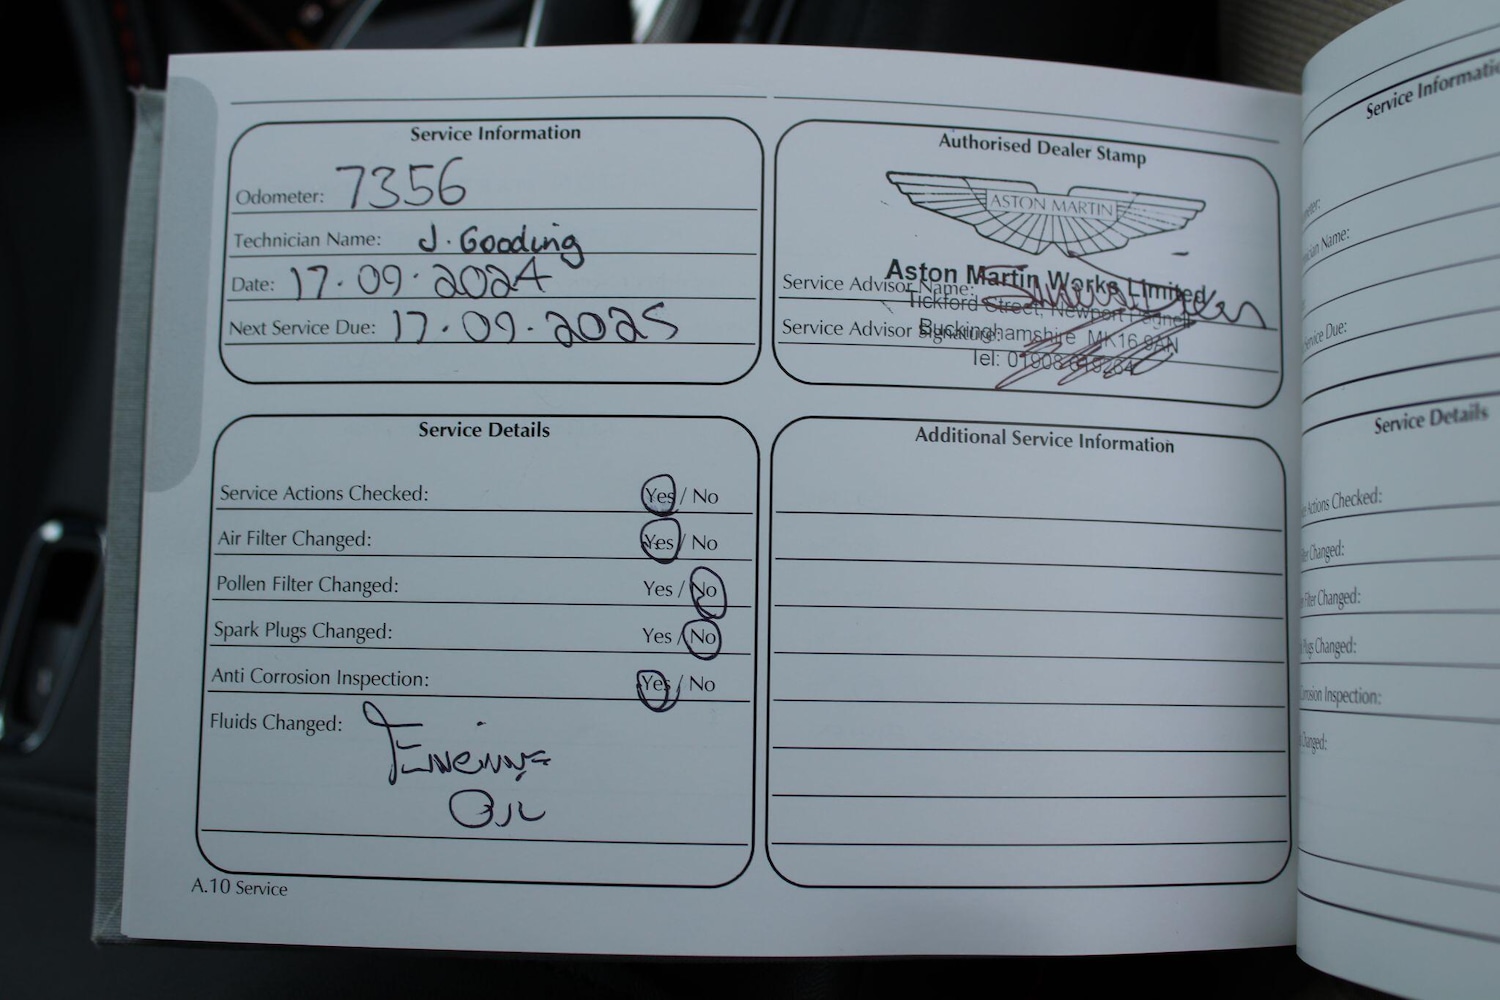 Service Information
Odometer: 7356
Technician Name: J. Gooding
Date: 17.09.2024
Next Service Due: 17.09.2025
Authorised Dealer Stamp
ASTON MARTIN
Aston Martin Works Limited
Service Advisor Name:
Tickford Street, Newport Pagnell
Buckinghamshire MK16 9AN
Service Advisor Signature:
Tel: 01908
Service Details
Service Actions Checked: Yes / No
Air Filter Changed: Yes / No
Pollen Filter Changed: Yes / No
Spark Plugs Changed: Yes / No
Anti Corrosion Inspection: Yes / No
Fluids Changed: Engine
Oil
Additional Service Information
A.10 Service
Service Informatio
meter:
ician Name:
Service Due:
Service Details
Actions Checked:
Changed:
Filter Changed:
Plugs Changed:
rosion Inspection:
Changed: